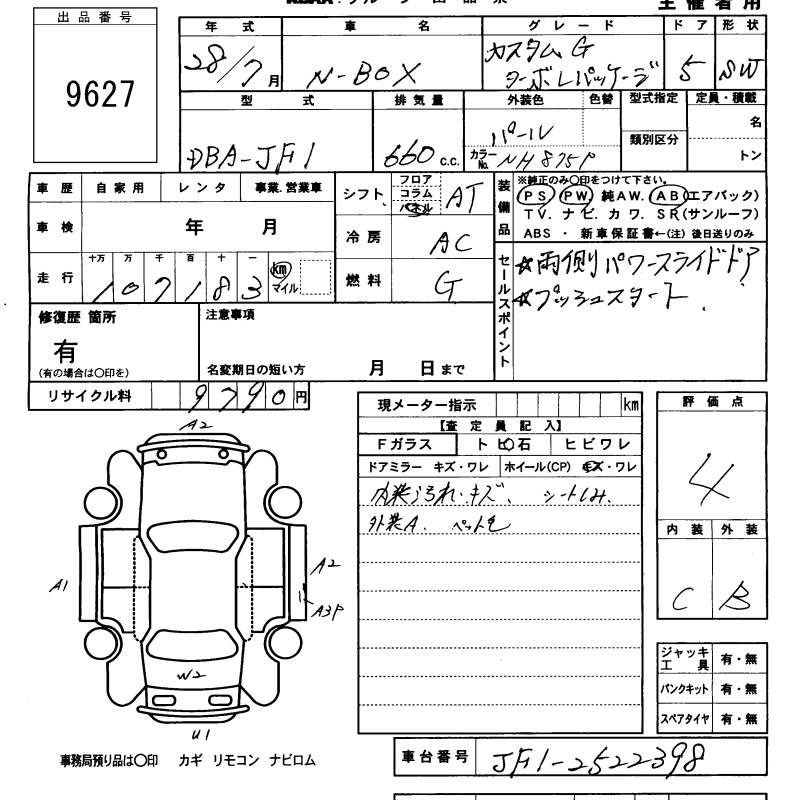 主催者用
出品番号
9627
年式 車名 グレード ドア 形状
28/7月 N-BOX カスタムG ターボLパッケージ 5 SW
型式 排気量 外装色 色替 型式指定 定員・積載
DBA-JF1 660 c.c. パール
カラーNo. NH875P
類別区分 名
トン
車歴 自家用 レンタ 事業.営業車
車検 年 月
走行 十万 万 千 百 十 一
107183 km マイル
シフト フロア コラム パネル AT
冷房 AC
燃料 G
装備品 ※純正のみ〇印をつけて下さい。
PS PW 純AW. AB(エアバック)
TV. ナビ. カワ. SR(サンルーフ)
ABS ・ 新車保証書←(注) 後日送りのみ
セールスポイント
☆両側パワースライドドア
☆プッシュスタート
修復歴 箇所
有
(有の場合は〇印を)
注意事項
名変期日の短い方 月 日まで
リサイクル料 9790円
現メーター指示 km
【査定員記入】
Fガラス トビ石 ヒビワレ
ドアミラー キズ・ワレ ホイール(CP) キズ・ワレ
内装汚れ・キズ、シートしみ.
外装A. ペット毛
評価点
4
内装 外装
C B
A2
A1
A2
A3P
W2
U1
ジャッキ工具 有・無
パンクキット 有・無
スペアタイヤ 有・無
事務局預り品は〇印 カギ リモコン ナビロム
車台番号 JF1-2522398